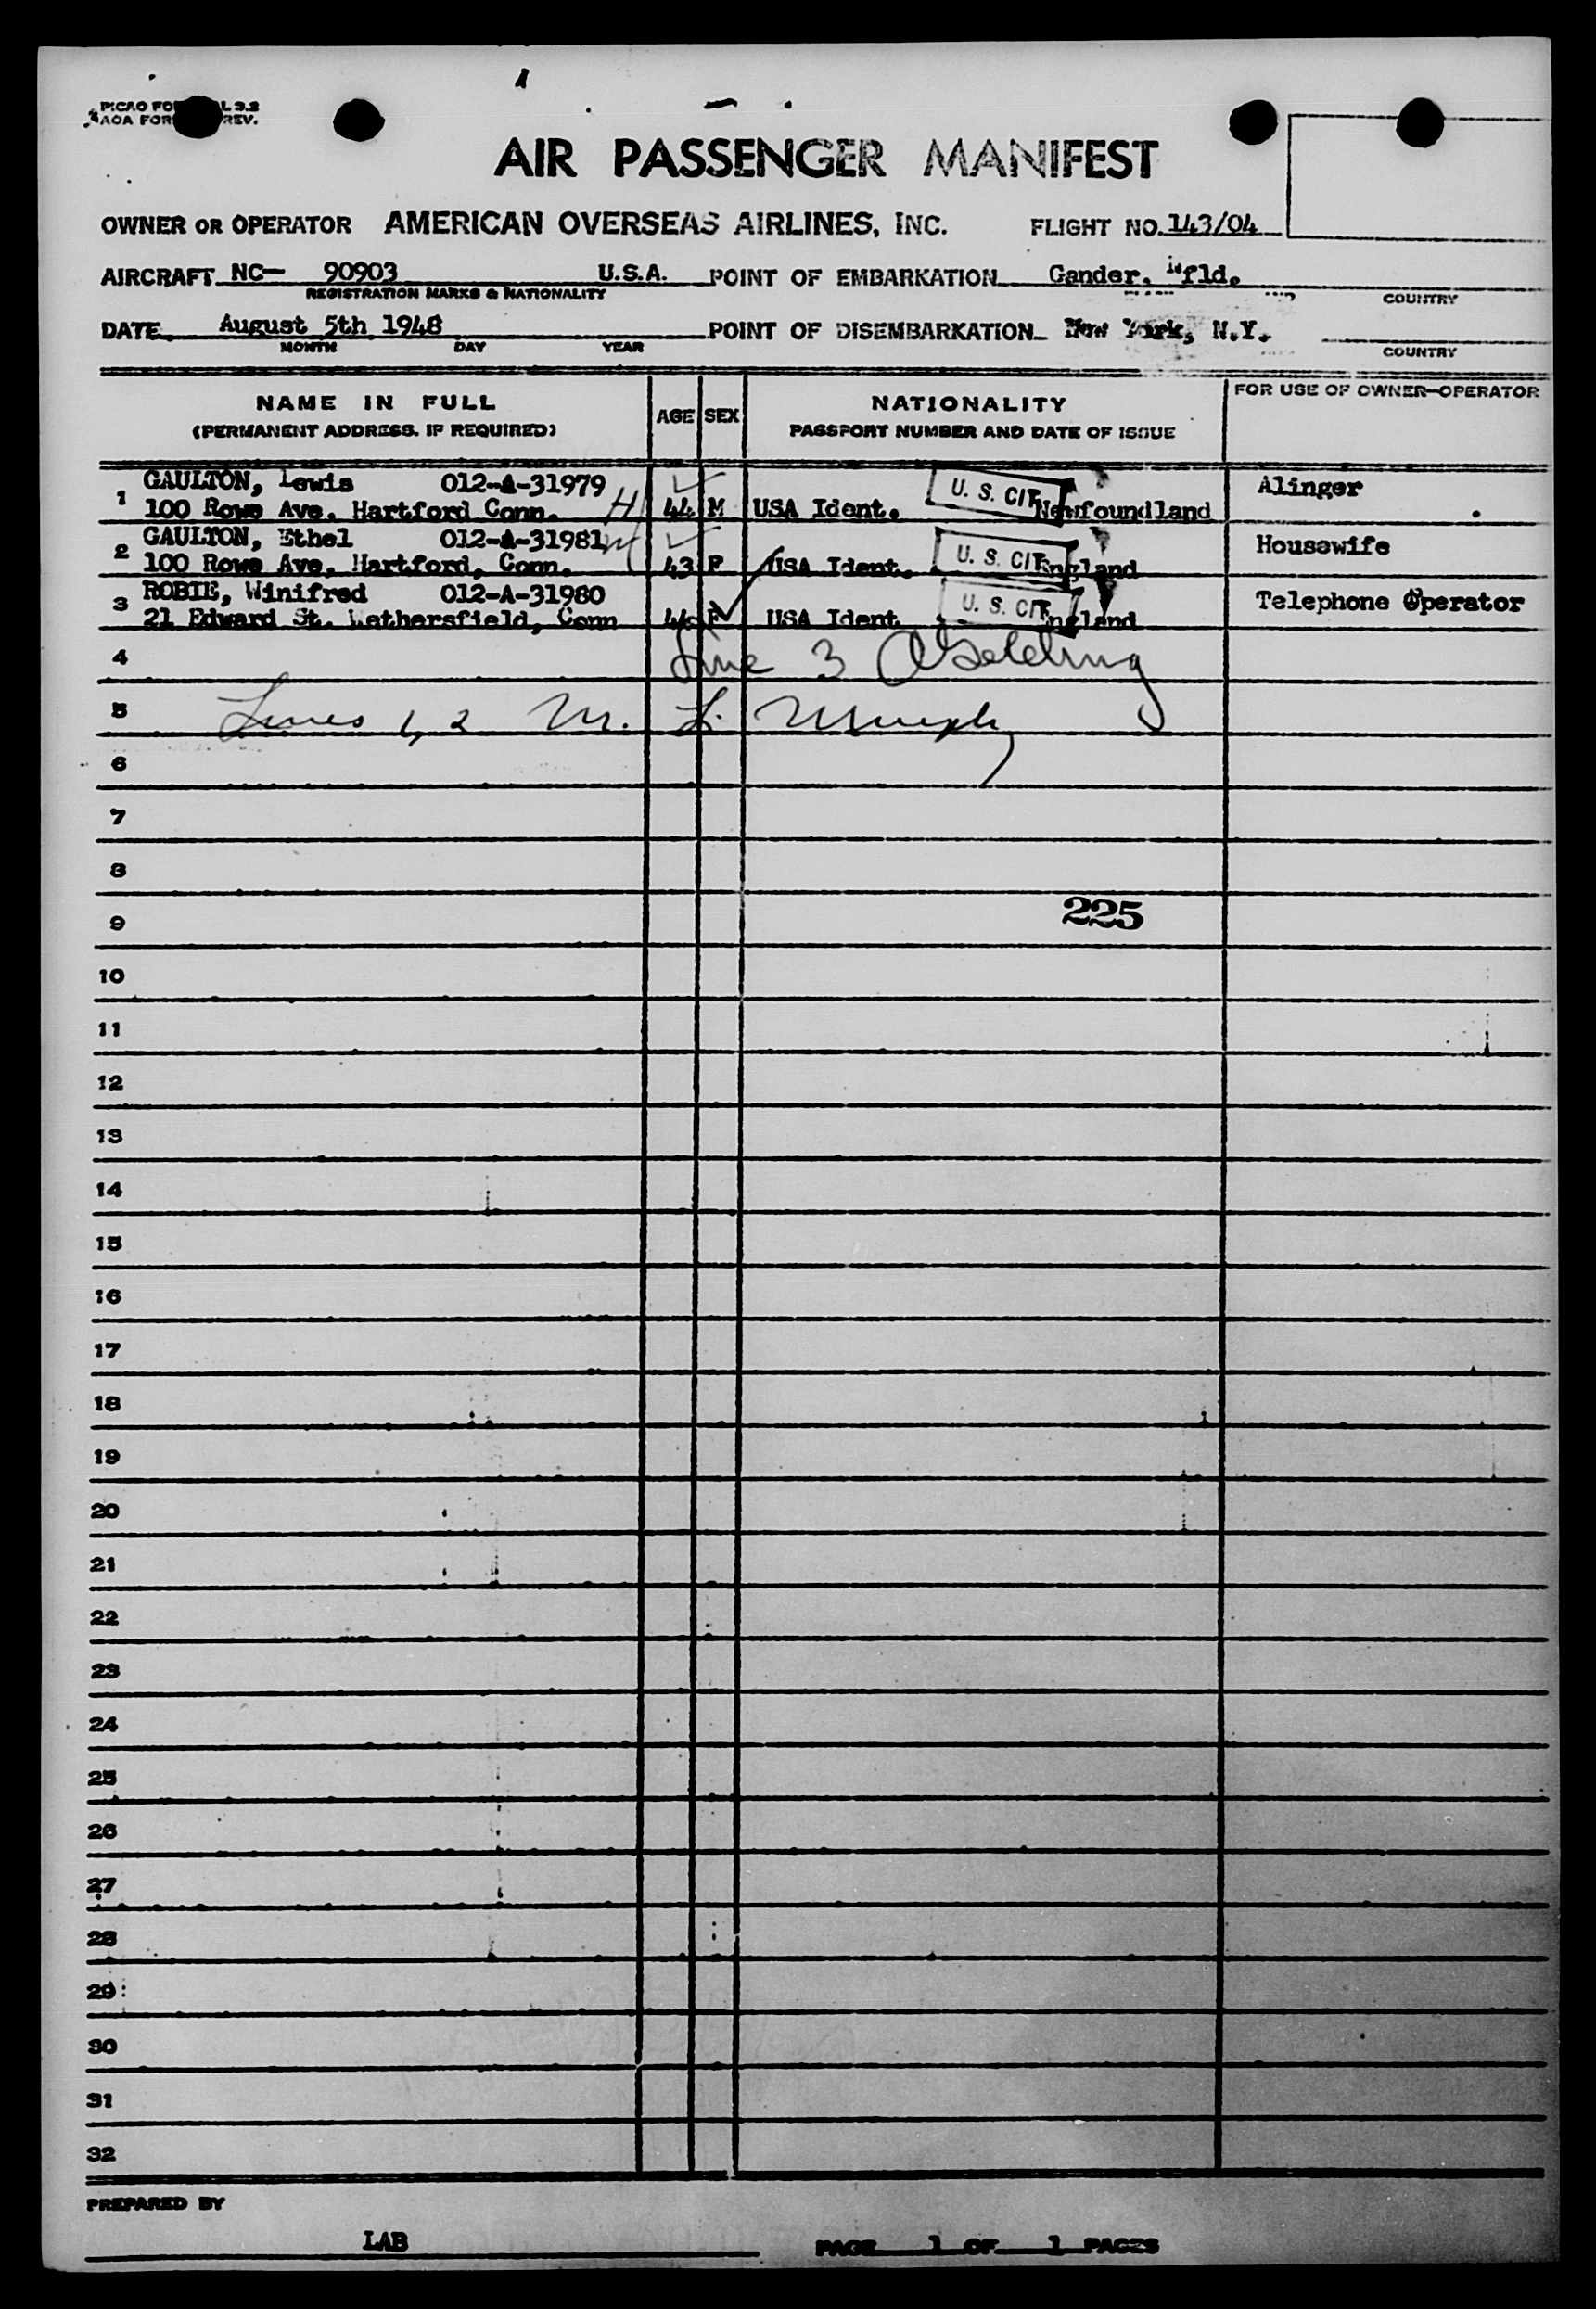 AIR PASSENGER MANIFEST
OWNER OR OPERATOR AMERICAN OVERSEAS AIRLINES, INC. FLIGHT NO. 143/04
AIRCRAFT NC— 90903 U.S.A. POINT OF EMBARKATION Gander, Nfld.
REGISTRATION MARKS & NATIONALITY COUNTRY
DATE August 5th 1948 POINT OF DISEMBARKATION New York, N.Y.
MONTH DAY YEAR COUNTRY
NAME IN FULL AGE SEX NATIONALITY FOR USE OF OWNER—OPERATOR
(PERMANENT ADDRESS, IF REQUIRED) PASSPORT NUMBER AND DATE OF ISSUE
1 GAULTON, Lewis 012-A-31979 U. S. CIT. Alinger
100 Rowe Ave. Hartford Conn. 44 M USA Ident. Newfoundland
2 GAULTON, Ethel 012-A-31981 U. S. CIT. Housewife
100 Rowe Ave. Hartford, Conn. 43 F USA Ident. England
3 ROBIE, Winifred 012-A-31980 U. S. CIT. Telephone Operator
21 Edward St. Wethersfield, Conn F USA Ident England
4 Line 3
5 Lines 1, 2 M. L. Murphy
6
7
8
9 225
10
11
12
13
14
15
16
17
18
19
20
21
22
23
24
25
26
27
28
29
30
31
32
PREPARED BY
LAB PAGE 1 OF 1 PAGES